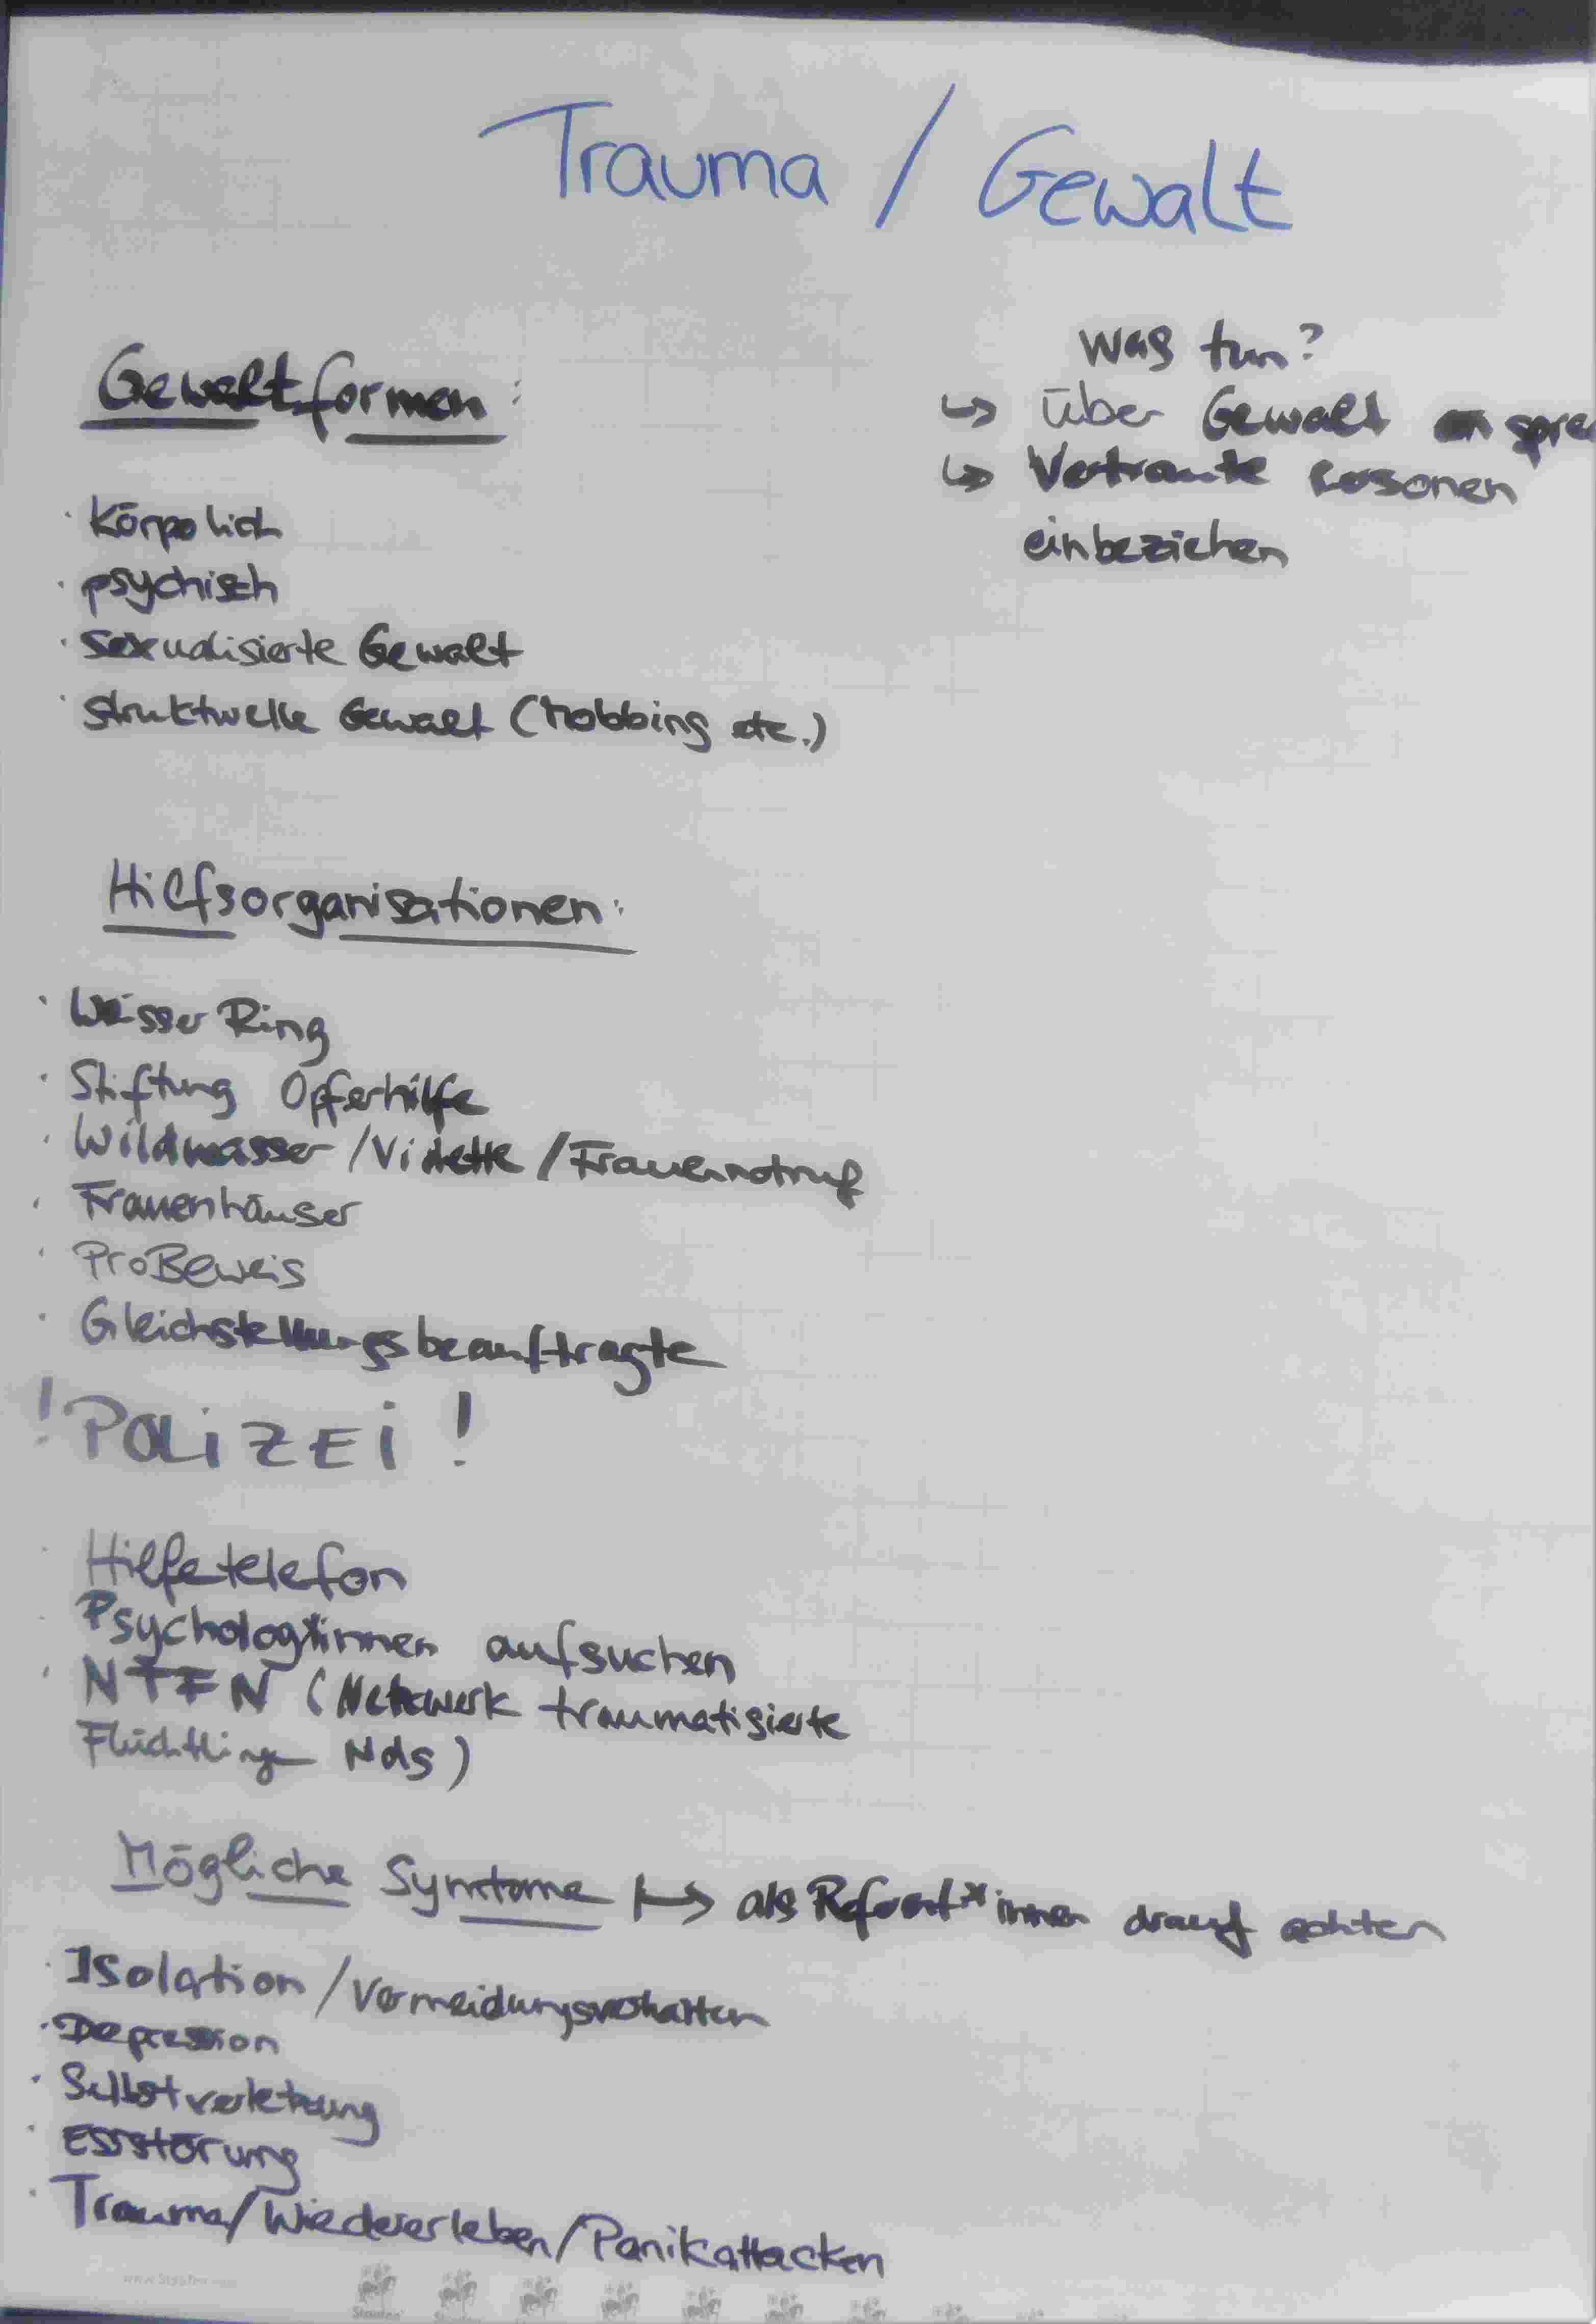 Trauma / Gewalt
Gewaltformen:
· Körperlich
· psychisch
· sexualisierte Gewalt
· strukturelle Gewalt (Mobbing etc.)
Was tun?
↳ über Gewalt spre
↳ Vertraute Personen
einbeziehen
Hilfsorganisationen:
· Weisser Ring
· Stiftung Opferhilfe
· Wildwasser / Violetta / Frauennotruf
· Frauenhäuser
· ProBeweis
· Gleichstellungsbeauftragte
! POLiZEi !
· Hilfetelefon
· Psycholog*innen aufsuchen
· NTFN (Netzwerk traumatisierte
Flüchtlinge Nds)
Mögliche Symtome ↦ als Referent*innen drauf achten
· Isolation / Vermeidungsverhalten
· Depression
· Selbstverletzung
· Essstörung
· Trauma/Wiedererleben/Panikattacken